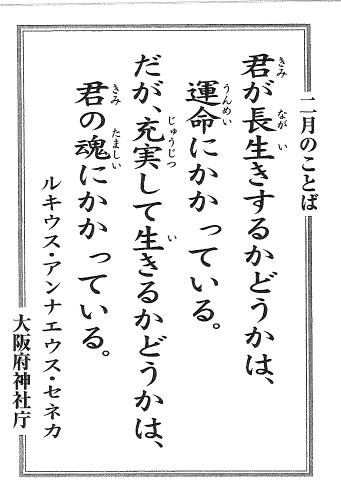 二月のことば
君が長生きするかどうかは、
運命にかかっている。
だが、充実して生きるかどうかは、
君の魂にかかっている。
ルキウス・アンナエウス・セネカ
大阪府神社庁